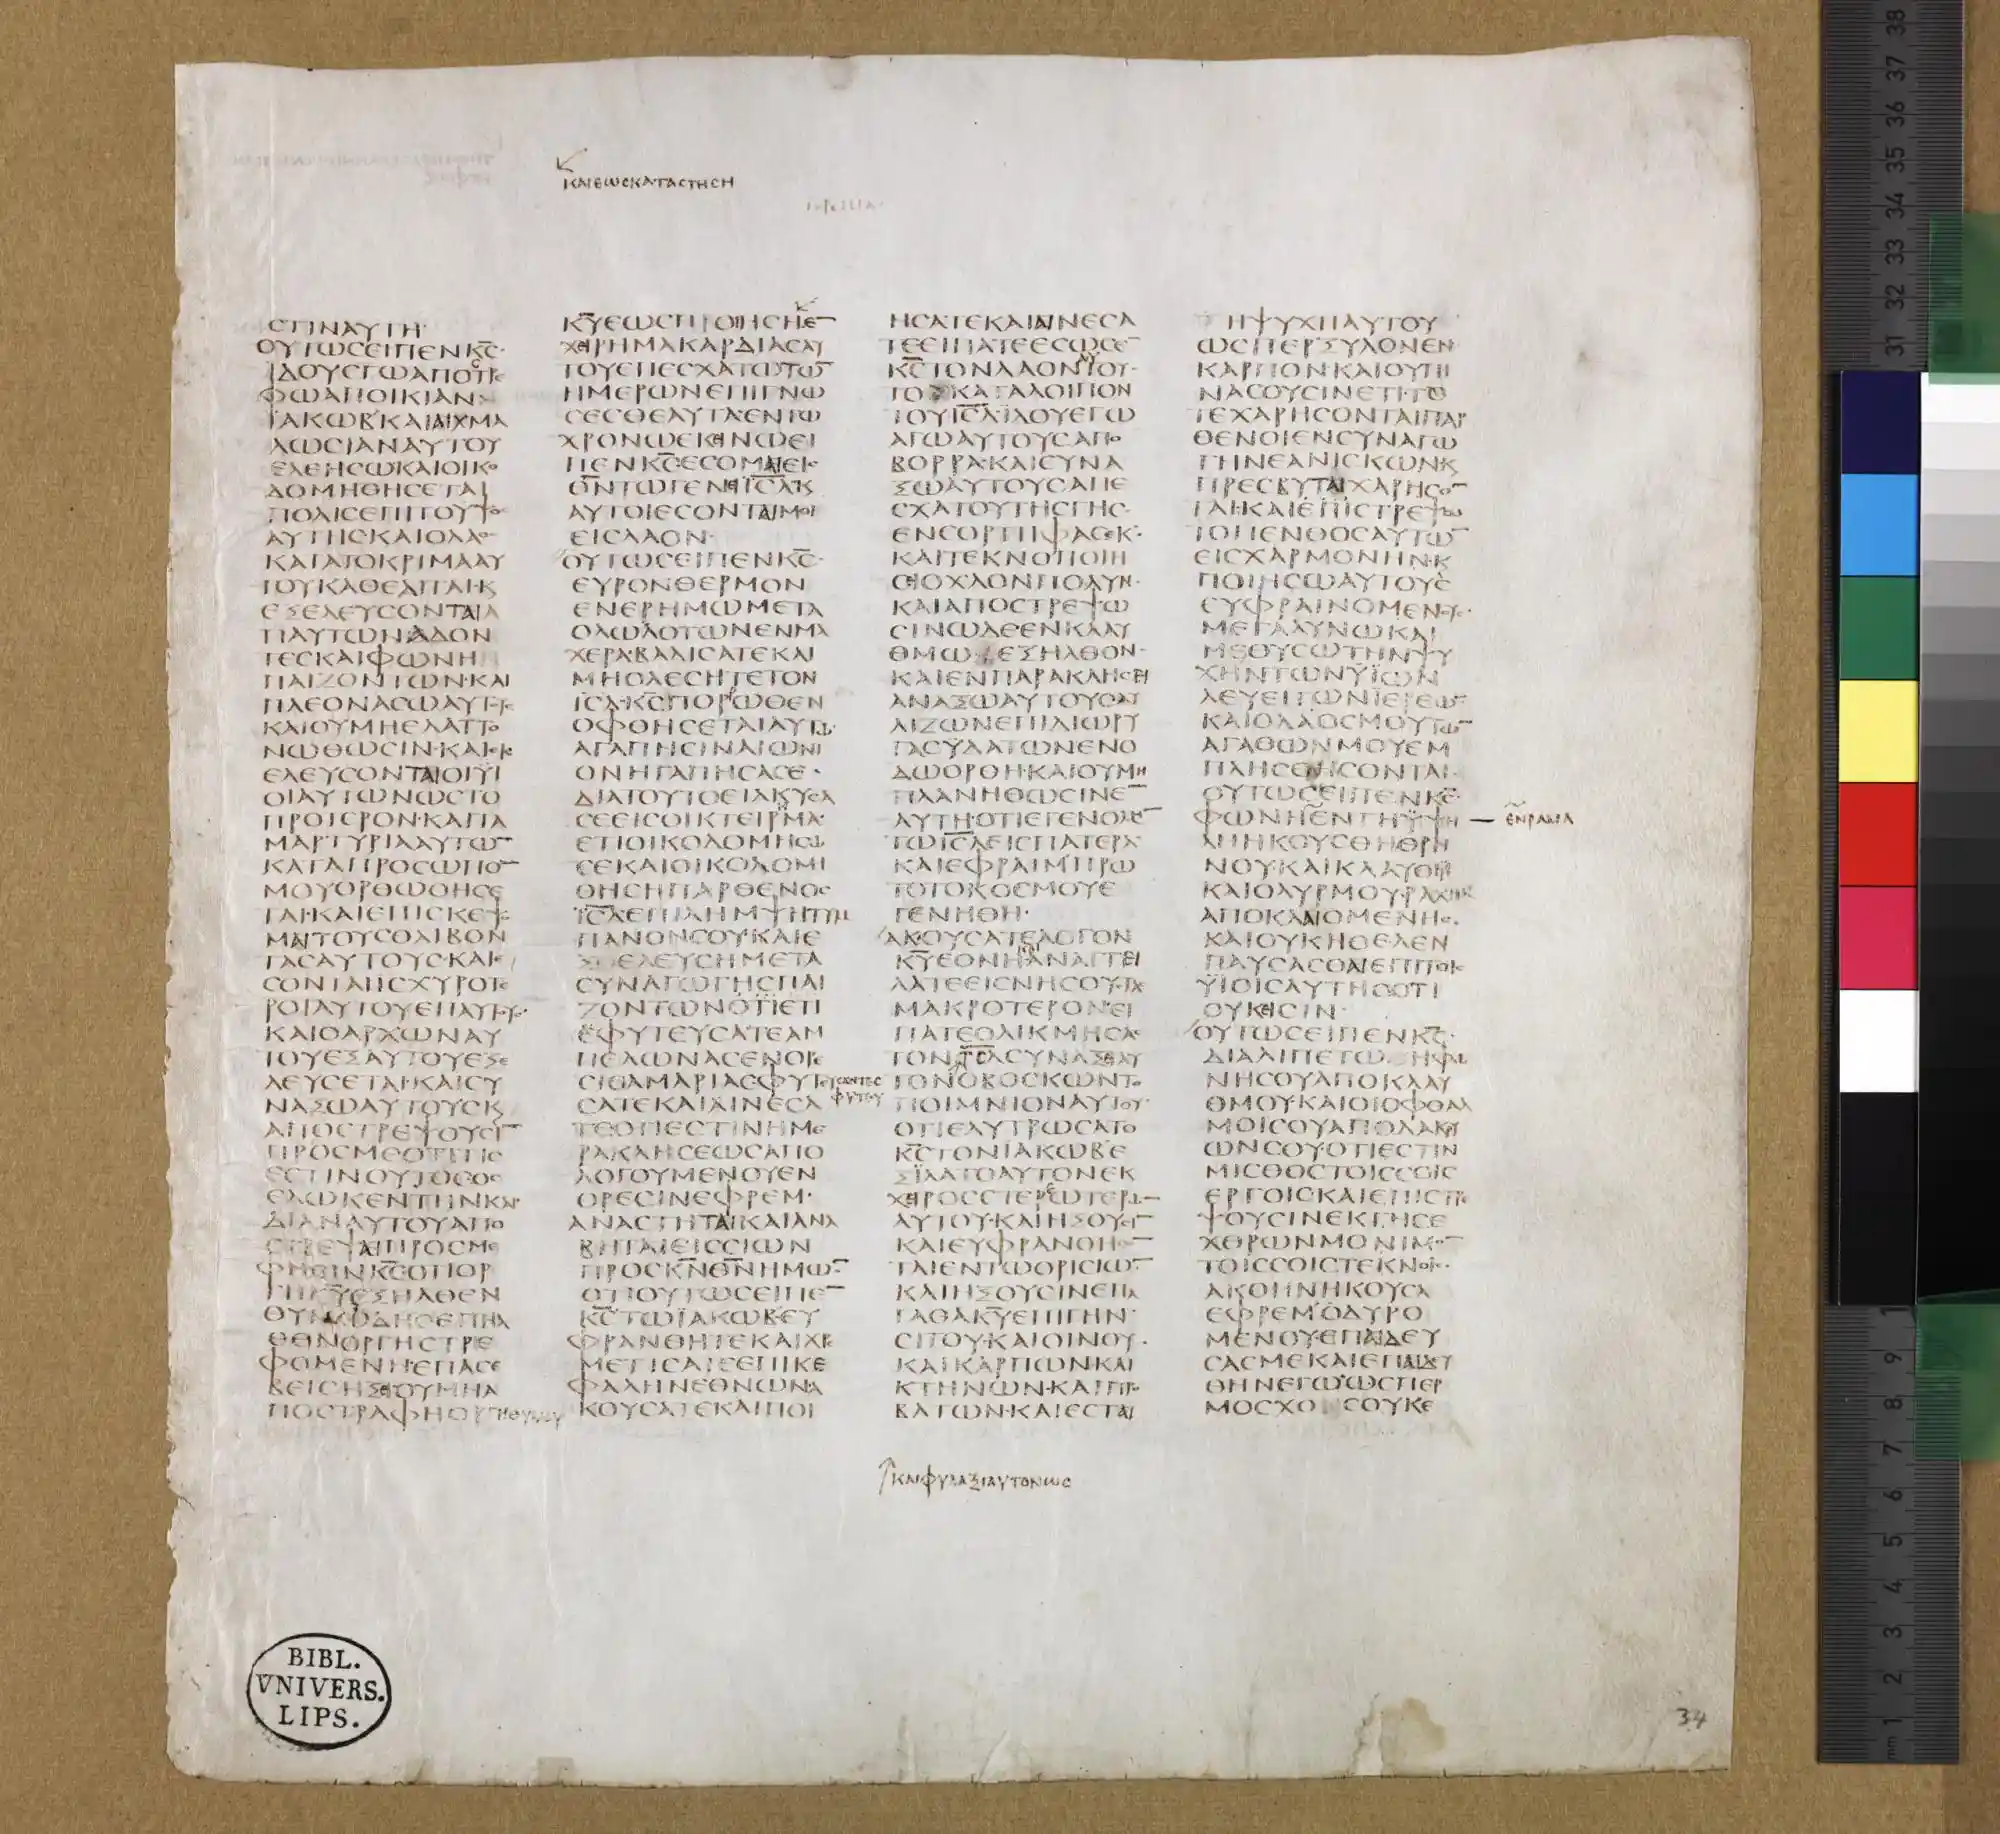 ΚΑΙΕΩΣΚΑΤΑΣΤΗΣΗ
ϹΤΙΝΑΥΤΗ·
ΟΥΤΩϹΕΙΠΕΝΚ̅Ϲ̅·
ΪΔΟΥΕΓΩΑΠΟϹΤΡΕ
ΦΩΑΠΟΙΚΙΑΝ
ΪΑΚΩΒΚΑΙΑΙΧΜΑ
ΛΩϹΙΑΝΑΥΤΟΥ
ΕΛΕΗϹΩΚΑΙΟΙΚΟ
ΔΟΜΗΘΗϹΕΤΑΙ
ΠΟΛΙϹΕΠΙΤΟΥΨΟϹ
ΑΥΤΗϹΚΑΙΟΛΑΟϹ
ΚΑΤΑΤΟΚΡΙΜΑΑΥ
ΤΟΥΚΑΘΕΔΙΤΑΙ·Κ
ΕΞΕΛΕΥϹΟΝΤΑΙΑ
ΠΑΥΤΩΝΑΔΟΝ
ΤΕϹΚΑΙΦΩΝΗ
ΠΑΙΖΟΝΤΩΝ·ΚΑΙ
ΠΛΕΟΝΑϹΩΑΥΤΟΥϹ
ΚΑΙΟΥΜΗΕΛΑΤΤΟ
ΝΩΘΩϹΙΝ·ΚΑΙΕΙϹ
ΕΛΕΥϹΟΝΤΑΙΟΙΫΙ
ΟΙΑΥΤΩΝΩϹΤΟ
ΠΡΟΤΕΡΟΝ·ΚΑΙΤΑ
ΜΑΡΤΥΡΙΑΑΥΤΩ̅
ΚΑΤΑΠΡΟϹΩΠΟ̅
ΜΟΥΟΡΘΩΘΗϹΕ
ΤΑΙ·ΚΑΙΕΠΙϹΚΕΨΟ
ΜΑΙΤΟΥϹΘΛΙΒΟΝ
ΤΑϹΑΥΤΟΥϹ·ΚΑΙΕ
ϹΟΝΤΑΙΙϹΧΥΡΟΤΕ
ΡΟΙΑΥΤΟΥΕΠΑΥΤΟΥϹ·
ΚΑΙΟΑΡΧΩΝΑΥ
ΤΟΥΕΞΑΥΤΟΥΕΞΕ
ΛΕΥϹΕΤΑΙ·ΚΑΙϹΥ
ΝΑΞΩΑΥΤΟΥϹΚ
ΑΠΟϹΤΡΕΨΟΥϹΙ̅
ΠΡΟϹΜΕΟΤΙΤΙϹ
ΕϹΤΙΝΟΥΤΟϹΟϹ
ΕΔΩΚΕΝΤΗΝΚΑΡ
ΔΙΑΝΑΥΤΟΥΑΠΟ
ϹΤΡΕΨΑΙΠΡΟϹΜΕ
ΦΗϹΙΝΚ̅Ϲ̅ΟΤΙΟΡ
ΓΗΚ̅Υ̅ΕΞΗΛΘΕΝ
ΘΥΜΩΔΗϹΕΞΗΛ
ΘΕΝΟΡΓΗϹΤΡΕ
ΦΟΜΕΝΗΕΠΑϹΕ
ΒΕΙϹΗΞΕΙΟΥΜΗΑ
ΠΟϹΤΡΑΦΗΟΡΓΗΘΥΜΟΥ
Κ̅Υ̅ΕΩϹΠΟΙΗϹΗΕ̅
ΧΕΙΡΗΜΑΚΑΡΔΙΑϹΑΥ
ΤΟΥΕΠΕϹΧΑΤΩΤΩ̅
ΗΜΕΡΩΝΕΠΙΓΝΩ
ϹΕϹΘΕΑΥΤΑ·ΕΝΤΩ
ΧΡΟΝΩΕΚΕΙΝΩΕΙ
ΠΕΝΚ̅Ϲ̅ΕϹΟΜΑΙΕΙϹ
Θ̅Ν̅ΤΩΓΕΝΕΙΪ̅Ϲ̅Λ̅Κ
ΑΥΤΟΙΕϹΟΝΤΑΙΜΟΙ
ΕΙϹΛΑΟΝ·
ΟΥΤΩϹΕΙΠΕΝΚ̅Ϲ̅·
ΕΥΡΟΝΘΕΡΜΟΝ
ΕΝΕΡΗΜΩΜΕΤΑ
ΟΛΩΛΟΤΩΝΕΝΜΑ
ΧΕΡΑ·ΒΑΔΙϹΑΤΕΚΑΙ
ΜΗΟΛΕϹΗΤΕΤΟΝ
Ι̅Ϲ̅Λ̅·Κ̅Ϲ̅ΠΟΡΡΩΘΕΝ
ΟΦΘΗϹΕΤΑΙΑΥΤΩ·
ΑΓΑΠΗϹΙΝΑΙΩΝΙ
ΟΝΗΓΑΠΗϹΑϹΕ·
ΔΙΑΤΟΥΤΟΕΙΛΚΥϹΑ
ϹΕΕΙϹΟΙΚΤΕΙΡΗΜΑ·
ΕΤΙΟΙΚΟΔΟΜΗϹΩ
ϹΕΚΑΙΟΙΚΟΔΟΜΙ
ΘΗϹΗΠΑΡΘΕΝΟϹ
Ϊ̅Ϲ̅Λ̅ΕΤΙΛΗΜΨΗΤΥΜ
ΠΑΝΟΝϹΟΥ·ΚΑΙΕ
ΞΕΛΕΥϹΗΜΕΤΑ
ϹΥΝΑΓΩΓΗϹΠΑΙ
ΖΟΝΤΩΝΟΤΙΕΤΙ
ΕΦΥΤΕΥϹΑΤΕΑΜ
ΠΕΛΩΝΑϹΕΝΟΡΕ
ϹΙϹΑΜΑΡΙΑϹΦΥΤΕΥϹΑΝΤΕϹ
ΦΥΤΕΥ
ϹΑΤΕΚΑΙΑΙΝΕϹΑ
ΤΕΟΤΙΕϹΤΙΝΗΜΕ
ΡΑΚΛΗϹΕΩϹΑΠΟ
ΛΟΓΟΥΜΕΝΟΥΕΝ
ΟΡΕϹΙΝΕΦΡΕΜ·
ΑΝΑϹΤΗΤΑΙΚΑΙΑΝΑ
ΒΗΤΑΙΕΙϹϹΙΩΝ
ΠΡΟϹΚ̅Ν̅Θ̅Ν̅ΗΜΩ̅
ΟΤΙΟΥΤΩϹΕΙΠΕ̅
Κ̅Ϲ̅ΤΩΪΑΚΩΒ·ΕΥ
ΦΡΑΝΘΗΤΕΚΑΙΧΡΕ
ΜΕΤΙϹΑΤΕΕΠΙΚΕ
ΦΑΛΗΝΕΘΝΩΝΑ
ΚΟΥϹΑΤΕΚΑΙΠΟΙ
ΗϹΑΤΕΚΑΙΑΙΝΕϹΑ
ΤΕΕΙΠΑΤΕΕϹΩϹΕ̅
Κ̅Ϲ̅ΤΟΝΛΑΟΝΑΥΤΟΥ·
ΤΟΚΑΤΑΛΟΙΠΟΝ
ΤΟΥΙ̅Ϲ̅Λ̅ΪΔΟΥΕΓΩ
ΑΓΩΑΥΤΟΥϹΑΠΟ
ΒΟΡΡΑ·ΚΑΙϹΥΝΑ
ΞΩΑΥΤΟΥϹΑΠΕ
ϹΧΑΤΟΥΤΗϹΓΗϹ·
ΕΝΕΟΡΤΗΦΑϹΕΚ·
ΚΑΙΤΕΚΝΟΠΟΙΗ
ϹΕΙΟΧΛΟΝΠΟΛΥΝ·
ΚΑΙΑΠΟϹΤΡΕΨΩ
ϹΙΝΩΔΕΕΝΚΛΑΥ
ΘΜΩΕΞΗΛΘΟΝ·
ΚΑΙΕΝΠΑΡΑΚΛΗϹΕΙ
ΑΝΑΞΩΑΥΤΟΥϹΑΥ
ΛΙΖΩΝΕΠΙΔΙΩΡΥ
ΓΑϹΫΔΑΤΩΝΕΝΟ
ΔΩΟΡΘΗ·ΚΑΙΟΥΜΗ
ΠΛΑΝΗΘΩϹΙΝΕ̅
ΑΥΤΗ·ΟΤΙΕΓΕΝΟΜΗ̅
ΤΩΙ̅Ϲ̅Λ̅ΕΙϹΠΑΤΕΡΑ·
ΚΑΙΕΦΡΑΙΜΠΡΩ
ΤΟΤΟΚΟϹΜΟΥΕ
ΓΕΝΗΘΗ·
ΑΚΟΥϹΑΤΕΛΟΓΟΝ
Κ̅Υ̅ΕΘΝΗΑΝΑΓΓΕΙ
ΛΑΤΕΕΙϹΝΗϹΟΥϹΤΑϹ
ΜΑΚΡΟΤΕΡΟΝ·ΕΙ
ΠΑΤΕΟΛΙΚΜΗϹΑϹ
ΤΟΝΙ̅Ϲ̅Λ̅ϹΥΝΑΞΕΙΑΥ
ΤΟΝΟΒΟϹΚΩΝΤΟ
ΠΟΙΜΝΙΟΝΑΥΤΟΥ·
ΟΤΙΕΛΥΤΡΩϹΑΤΟ
Κ̅Ϲ̅ΤΟΝΙΑΚΩΒΕ
ΞΙΛΑΤΟΑΥΤΟΝΕΚ
ΧΕΙΡΟϹϹΤΕΡΕΩΤΕΡΩ̅
ΑΥΤΟΥ·ΚΑΙΗΞΟΥϹΙ̅
ΚΑΙΕΥΦΡΑΝΘΗϹΟ̅
ΤΑΙΕΝΤΩΟΡΙϹΙΩ̅·
ΚΑΙΗΞΟΥϹΙΝΕΠΑ
ΓΑΘΑΚ̅Υ̅ΕΠΙΓΗΝ·
ϹΙΤΟΥ·ΚΑΙΟΙΝΟΥ·
ΚΑΙΚΑΡΠΩΝ·ΚΑΙ
ΚΤΗΝΩΝ·ΚΑΙΠΡΟ
ΒΑΤΩΝ·ΚΑΙΕϹΤΑΙ
ΗΨΥΧΗΑΥΤΟΥ
ΩϹΠΕΡΞΥΛΟΝΕΝ
ΚΑΡΠΟΝΚΑΙΟΥΠΙ
ΝΑϹΟΥϹΙΝΕΤΙ·ΤΟ
ΤΕΧΑΡΗϹΟΝΤΑΙΠΑΡ
ΘΕΝΟΙΕΝϹΥΝΑΓΩ
ΓΗΝΕΑΝΙϹΚΩΝΚ
ΠΡΕϹΒΥΤΑΙΧΑΡΗϹΟ̅
ΤΑΙ·ΚΑΙΕΠΙϹΤΡΕΨΩ
ΤΟΠΕΝΘΟϹΑΥΤΩ̅
ΕΙϹΧΑΡΜΟΝΗΝ·Κ
ΠΟΙΗϹΩΑΥΤΟΥϹ
ΕΥΦΡΑΙΝΟΜΕΝΟΥϹ·
ΜΕΓΑΛΥΝΩΚΑΙ
ΜΕΘΥϹΩΤΗΝΨΥ
ΧΗΝΤΩΝΫΙΩΝ
ΛΕΥΕΙΤΩΝΪΕΡΕΩ̅·
ΚΑΙΟΛΑΟϹΜΟΥΤΩ̅
ΑΓΑΘΩΝΜΟΥΕΜ
ΠΛΗϹΘΗϹΟΝΤΑΙ·
ΟΥΤΩϹΕΙΠΕΝΚ̅Ϲ̅·
ΦΩΝΗΕΝΤΗΫΨΗ — ΕΝΡΑΜΑ
ΛΗΗΚΟΥϹΘΗΘΡΗ
ΝΟΥ·ΚΑΙΚΛΑΥΘΜΟΥ
ΚΑΙΟΔΥΡΜΟΥ·ΡΑΧΗΛ
ΑΠΟΚΛΑΙΟΜΕΝΗϹ·
ΚΑΙΟΥΚΗΘΕΛΕΝ
ΠΑΥϹΑϹΘΑΙΕΠΙΤΟΙϹ
ΫΙΟΙϹΑΥΤΗϹΟΤΙ
ΟΥΚΕΙϹΙΝ·
ΟΥΤΩϹΕΙΠΕΝΚ̅Ϲ̅·
ΔΙΑΛΙΠΕΤΩΗΦΩ
ΝΗϹΟΥΑΠΟΚΛΑΥ
ΘΜΟΥ·ΚΑΙΟΙΟΦΘΑΛ
ΜΟΙϹΟΥΑΠΟΔΑΚΡΥ
ΩΝϹΟΥ·ΟΤΙΕϹΤΙΝ
ΜΙϹΘΟϹΤΟΙϹϹΟΙϹ
ΕΡΓΟΙϹΚΑΙΕΠΙϹΤΡΕ
ΨΟΥϹΙΝΕΚΓΗϹΕ
ΧΘΡΩΝΜΟΝΙΜΟ̅
ΤΟΙϹϹΟΙϹΤΕΚΝΟΙϹ·
ΑΚΟΗΝΗΚΟΥϹΑ
ΕΦΡΕΜΟΔΥΡΟ
ΜΕΝΟΥ·ΕΠΑΙΔΕΥ
ϹΑϹΜΕΚΑΙΕΠΑΙΔΕΥ
ΘΗΝΕΓΩΩϹΠΕΡ
ΜΟϹΧΟϹΟΥΚΕ
ΚΑΙΦΥΛΑΞΙΑΥΤΟΝΩϹ
BIBL.
VNIVERS.
LIPS.
34